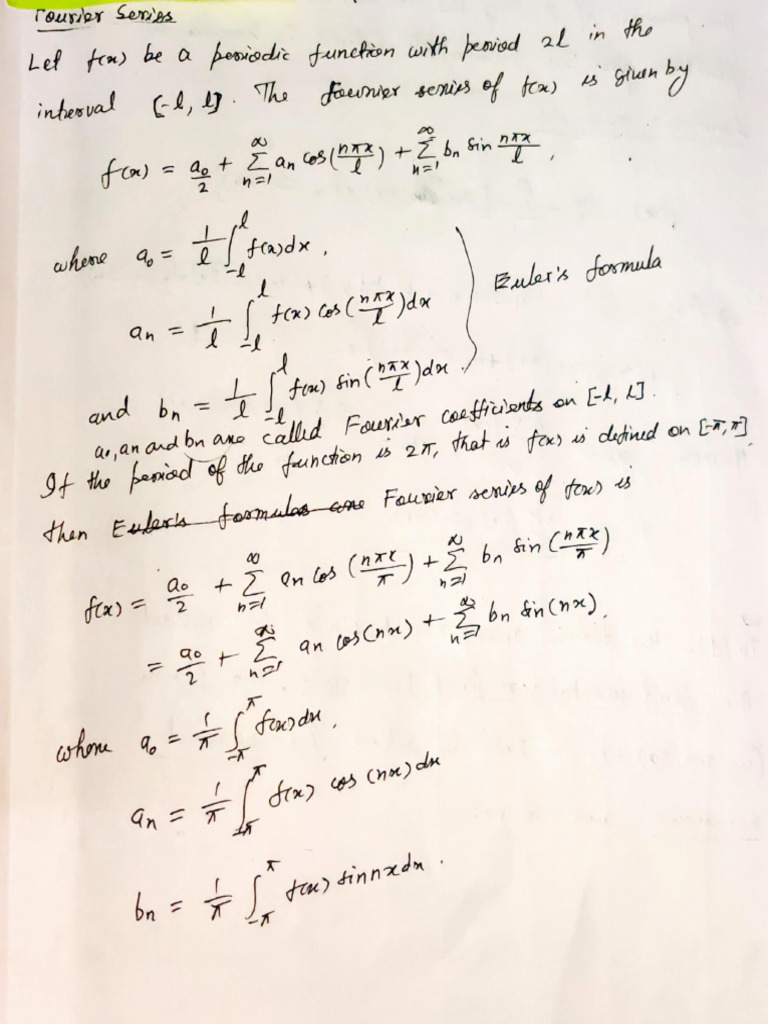 Fourier Series
Let f(x) be a periodic function with period 2l in the
interval [-l, l]. The fourier series of f(x) is given by
f(x) = a₀/2 + ∑_{n=1}^{∞} aₙ cos(nπx/l) + ∑_{n=1}^{∞} bₙ sin nπx/l ,
where a₀ = 1/l ∫_{-l}^{l} f(x)dx ,
Euler's formula
aₙ = 1/l ∫_{-l}^{l} f(x) cos(nπx/l)dx
and bₙ = 1/l ∫_{-l}^{l} f(x) sin(nπx/l)dx .
a₀, an and bn are called Fourier coefficients on [-l, l].
If the period of the function is 2π, that is f(x) is defined on [-π, π],
then Euler's formulas are Fourier series of f(x) is
f(x) = a₀/2 + ∑_{n=1}^{∞} an cos (nπx/π) + ∑_{n=1}^{∞} bn sin (nπx/π)
= a₀/2 + ∑_{n=1}^{∞} an cos(nx) + ∑_{n=1}^{∞} bn sin(nx).
where a₀ = 1/π ∫_{-π}^{π} f(x)dx ,
an = 1/π ∫_{-π}^{π} f(x) cos (nx)dx
bn = 1/π ∫_{-π}^{π} f(x) sin nx dx .